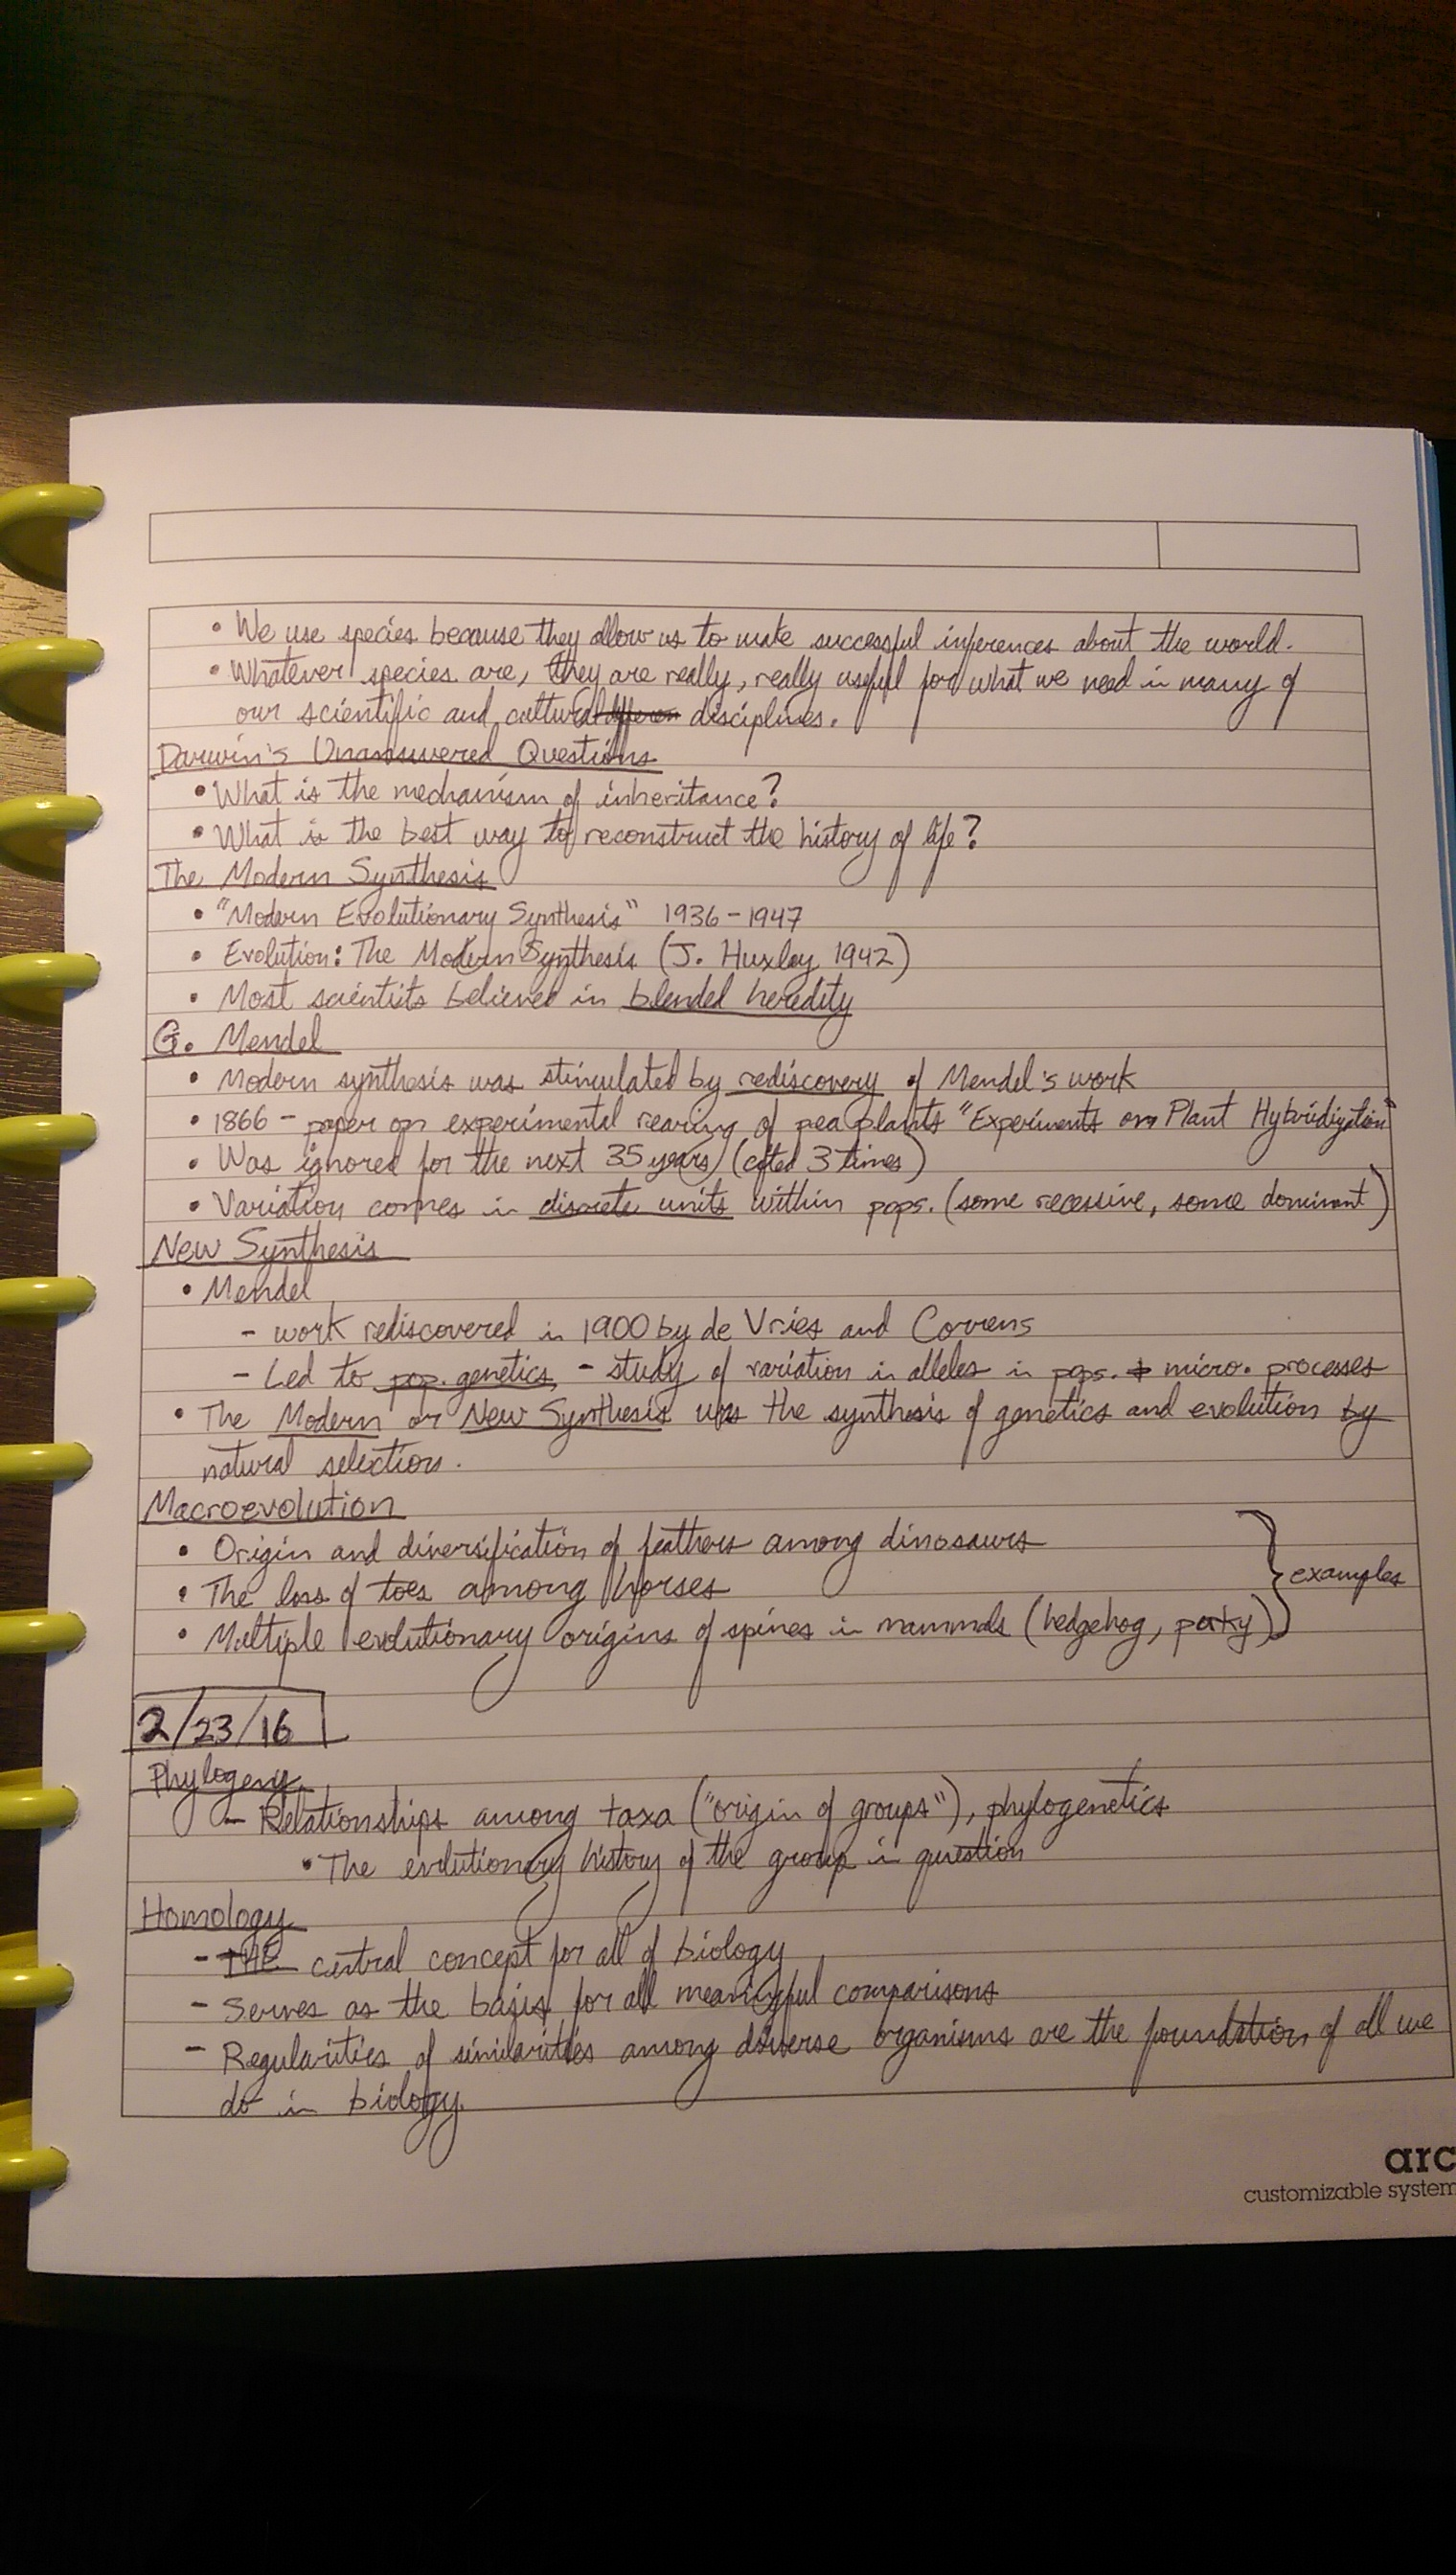 • We use species because they allow us to make successful inferences about the world.
• Whatever species are, they are really, really useful for what we need in many of
our scientific and cultural disciplines.
Darwin's Unanswered Questions
• What is the mechanism of inheritance?
• What is the best way to reconstruct the history of life?
The Modern Synthesis
• "Modern Evolutionary Synthesis" 1936-1947
• Evolution: The Modern Synthesis (J. Huxley 1942)
• Most scientists believed in blended heredity
G. Mendel
• Modern synthesis was stimulated by rediscovery of Mendel's work
• 1866 - paper on experimental rearing of pea plants "Experiments on Plant Hybridization"
• Was ignored for the next 35 years (cited 3 times)
• Variation comes in discrete units within pops. (some recessive, some dominant)
New Synthesis
• Mendel
- work rediscovered in 1900 by de Vries and Correns
- Led to pop. genetics - study of variation in alleles in pops. + micro. processes
• The Modern or New Synthesis was the synthesis of genetics and evolution by
natural selection.
Macroevolution
• Origin and diversification of feathers among dinosaurs
• The loss of toes among horses
} examples
• Multiple evolutionary origins of spines in mammals (hedgehog, porky)
2/23/16
Phylogeny
- Relationships among taxa ("origin of groups"), phylogenetics
• The evolutionary history of the group in question
Homology
- THE central concept for all of biology
- Serves as the basis for all meaningful comparisons
- Regularities of similarities among diverse organisms are the foundation of all we
do in biology.
arc
customizable system